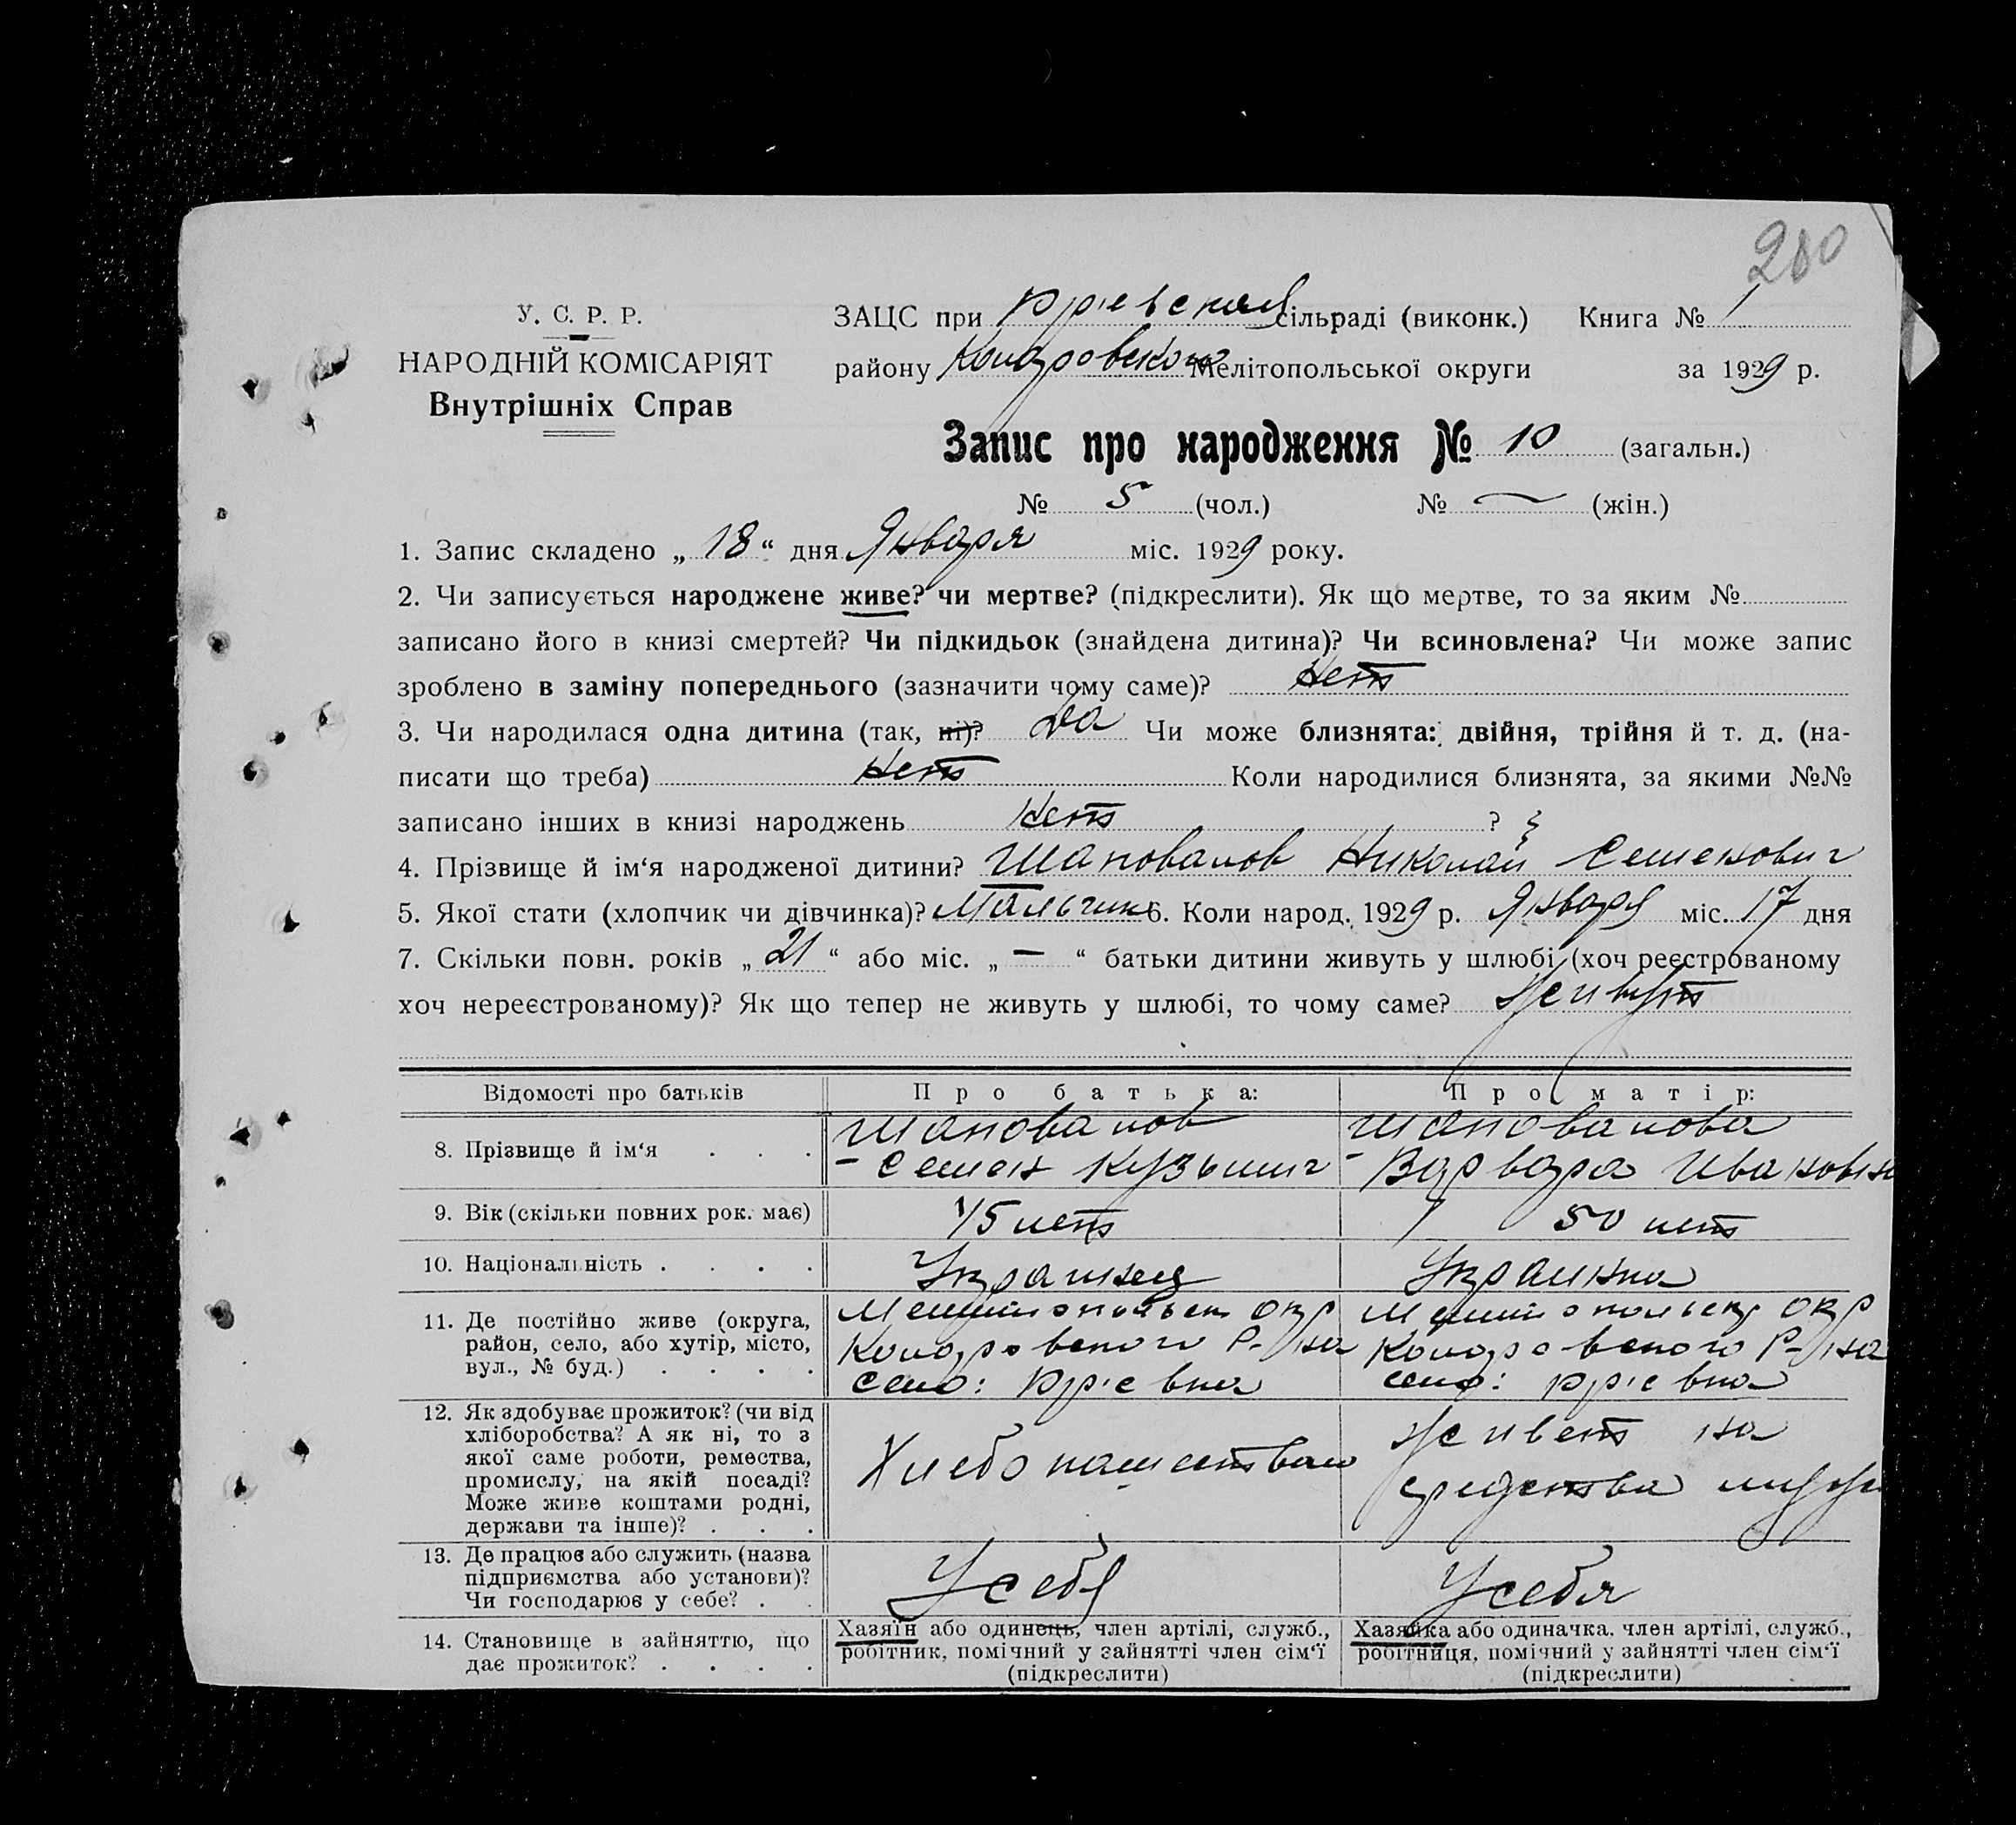 280
У. С. Р. Р.
НАРОДНІЙ КОМІСАРІЯТ
Внутрішніх Справ
ЗАЦС при Юрьевской сільраді (виконк.) Книга № 1
району Коларовского Мелітопольської округи за 1929 р.
Запис про народження № 10 (загальн.)
№ 5 (чол.) № — (жін.)
1. Запис складено „ 18 “ дня Января міс. 1929 року.
2. Чи записується народжене живе? чи мертве? (підкреслити). Як що мертве, то за яким №
записано його в книзі смертей? Чи підкидьок (знайдена дитина)? Чи всиновлена? Чи може запис
зроблено в заміну попереднього (зазначити чому саме)? Нет
3. Чи народилася одна дитина (так, ні)? Да Чи може близнята: двійня, трійня й т. д. (на-
писати що треба) Нет Коли народилися близнята, за якими №№
записано інших в книзі народжень Нет ?
4. Прізвище й ім‘я народженої дитини? Шаповалов Николай Семенович
5. Якої стати (хлопчик чи дівчинка)? Мальчик 6. Коли народ. 1929 р. Января міс. 17 дня
7. Скільки повн. років „ 21 “ або міс. „ — “ батьки дитини живуть у шлюбі (хоч реєстрованому
хоч нереєстрованому)? Як що тепер не живуть у шлюбі, то чому саме? Живут
Відомості про батьків Про батька: Про матір:
8. Прізвище й ім‘я . . .
Шаповалов
- Семен Кузьмич
Шаповалова
- Варвара Ивановна
9. Вік (скільки повних рок. має) 45 лет 50 лет
10. Національність . . . . Украинец Украинка
11. Де постійно живе (округа,
район, село, або хутір, місто,
вул., № буд.) . . . .
Мелитопольск окр
Коларовского Р-на
село: Юрьевка
Мелитопольск окр
Коларовского Р-на
село: Юрьевка
12. Як здобуває прожиток? (чи від
хліборобства? А як ні, то з
якої саме роботи, ремества,
промислу, на якій посаді?
Може живе коштами родні,
держави та інше)? . . .
Хлебопашеством
Живет на
средства мужа
13. Де працює або служить (назва
підприємства або установи)?
Чи господарює у себе? . .
У себя
У себя
14. Становище в зайняттю, що
дає прожиток? . . . .
Хазяїн або одинець, член артілі, служб.,
робітник, помічний у зайнятті член сім‘ї
(підкреслити)
Хазяйка або одиначка, член артілі, служб.,
робітниця, помічний у зайнятті член сім‘ї
(підкреслити)